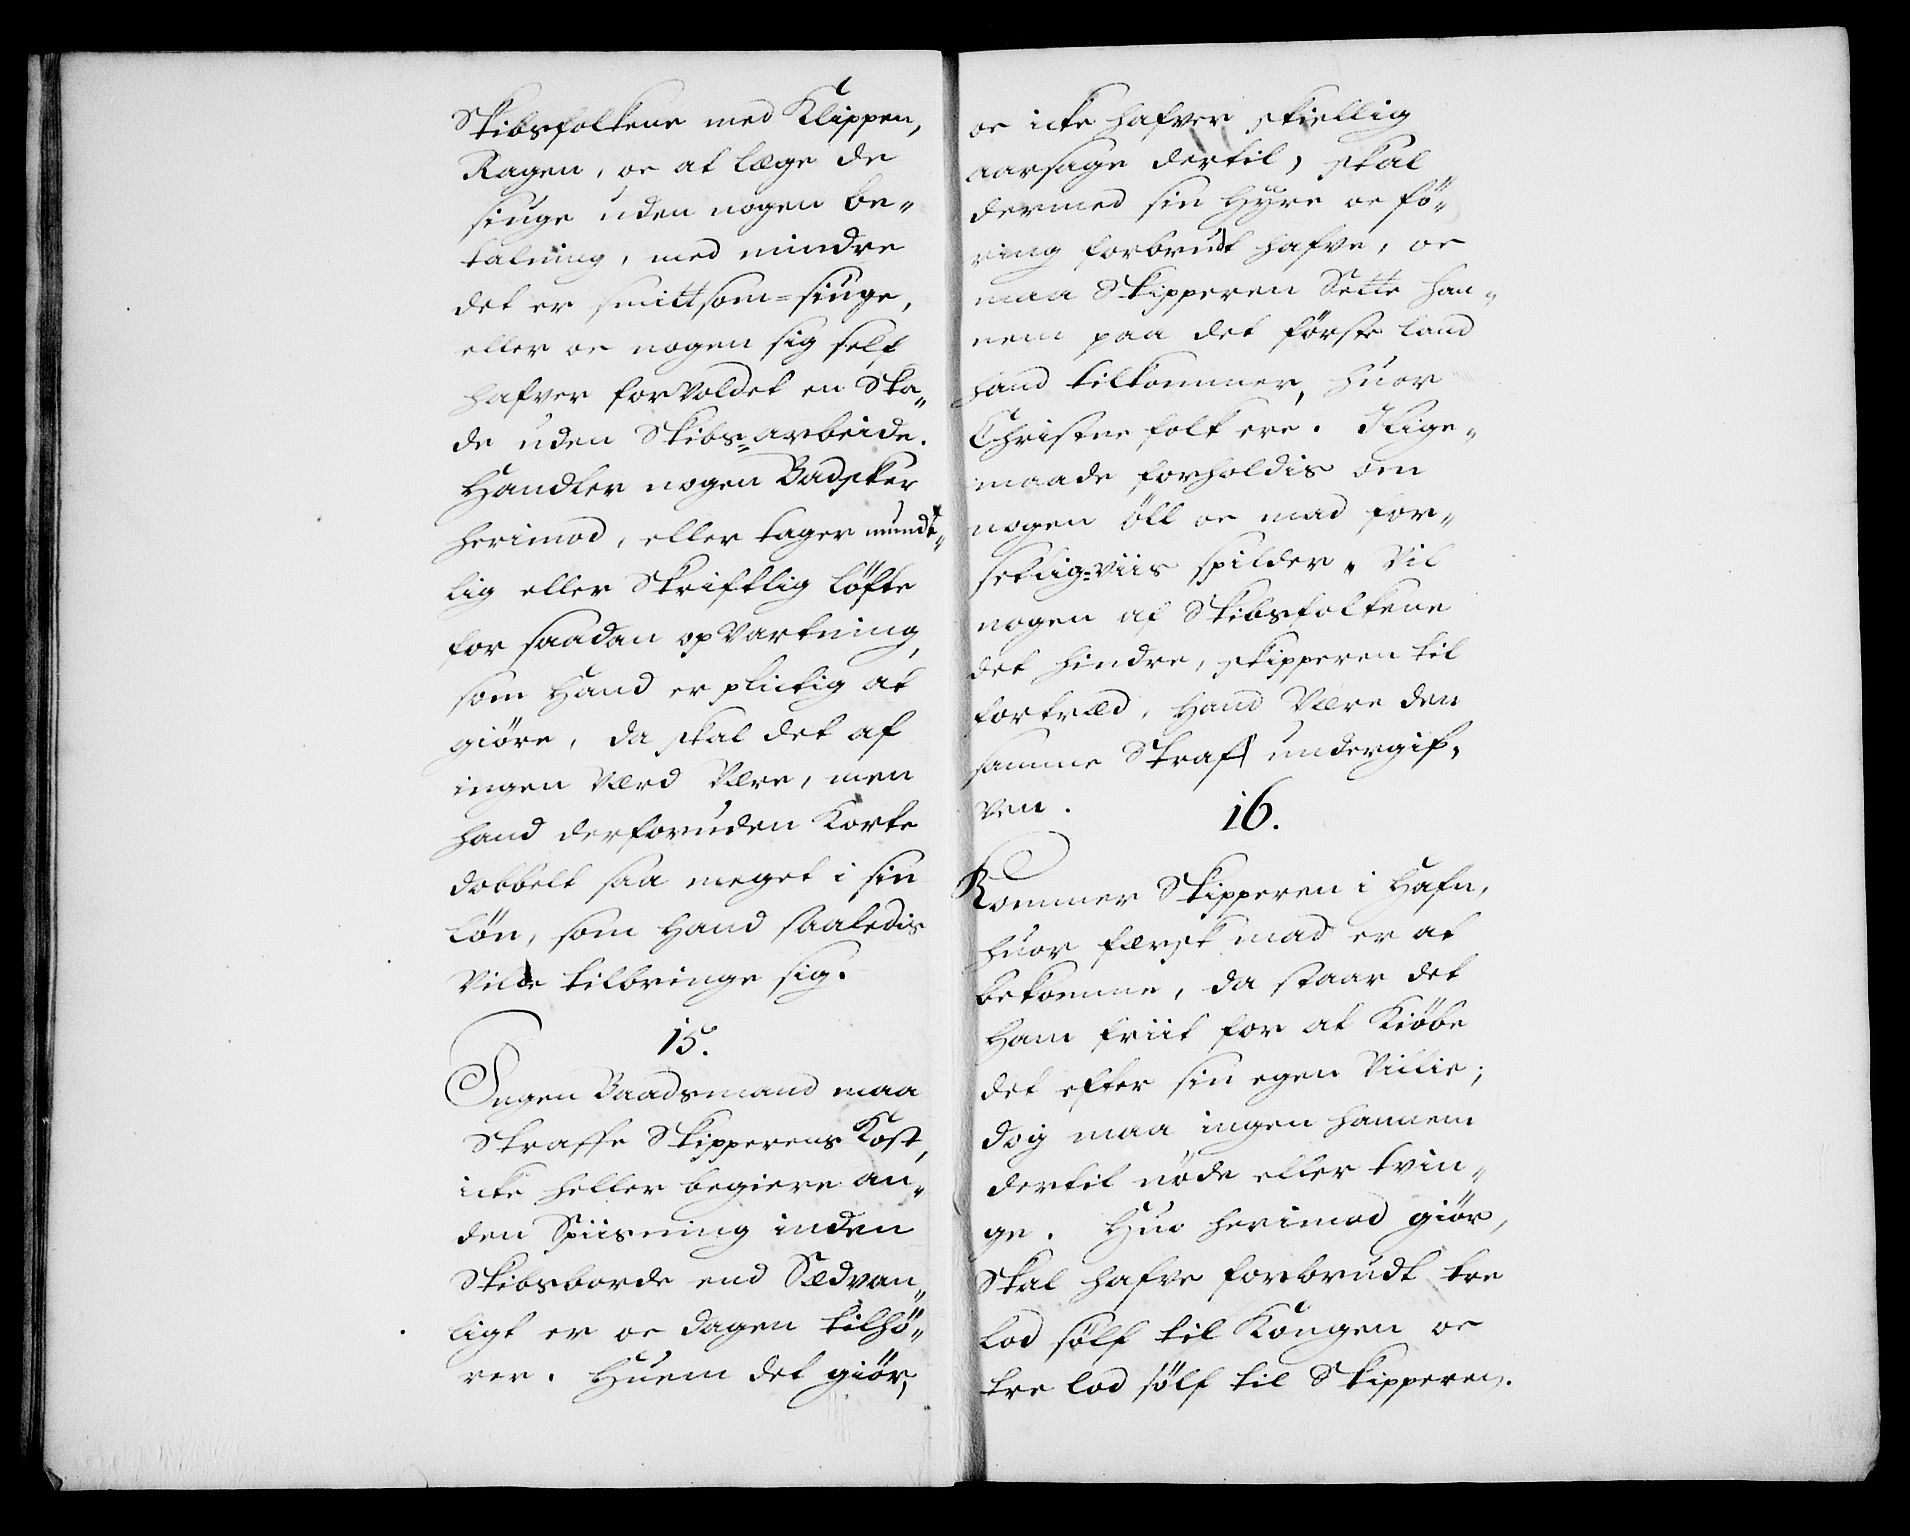 Skibsfolkene med Klippen,
Ragen, oc at læge de
siuge uden nogen be„
talning, med mindre
det er smittsom=siuge,
eller oc nogen sig self
hafver forvoldet en Ska„
de uden Skibs=arbeide.
Handler nogen Badsker
herimod, eller tager mundt„
lig eller Skriftlig løfte
for saadan opvartning,
som Hand er plictig at
giøre, da skal det af
ingen Værd Være, men
hand derforuden Korte
dobbelt saa meget i sin
Løn, som Hand saaledis
Vilde tilbringe sig.
15.
Ingen Baadsmand maa
Straffe Skipperens Kost,
icke heller begiere an„
den Spiisning inden
Skibsborde end Sædvan„
ligt er oc dagen tilhø„
rer. Huem det giør,
oc icke hafver skiellig
aarsage dertil, skal
dermed sin Hyre oc fø„
ring forbrudt hafve, oc
maa Skipperen Sette han„
nem paa det første land
hand tilkommer, huor
Christne folk ere. Ilige„
maade forholdis om
nogen øll oc mad for„
setlig=viis spilder. Vil
nogen af Skibsfolkene
det hindre, skipperen til
fortræd, Hand Være den
samme Straf undergif„
ven.
16.
Kommer Skipperen i Hafn,
huor fersk mad er at
bekomme, da staar det
Ham friit for at Kiøbe
det efter sin egen Villie;
dog maa ingen hannem
dertil nøde eller tvin„
ge. Huo herimod giør,
Skal hafve forbrudt tre
Lod sølf til Kongen oc
tre lod sølf til Skipperen.